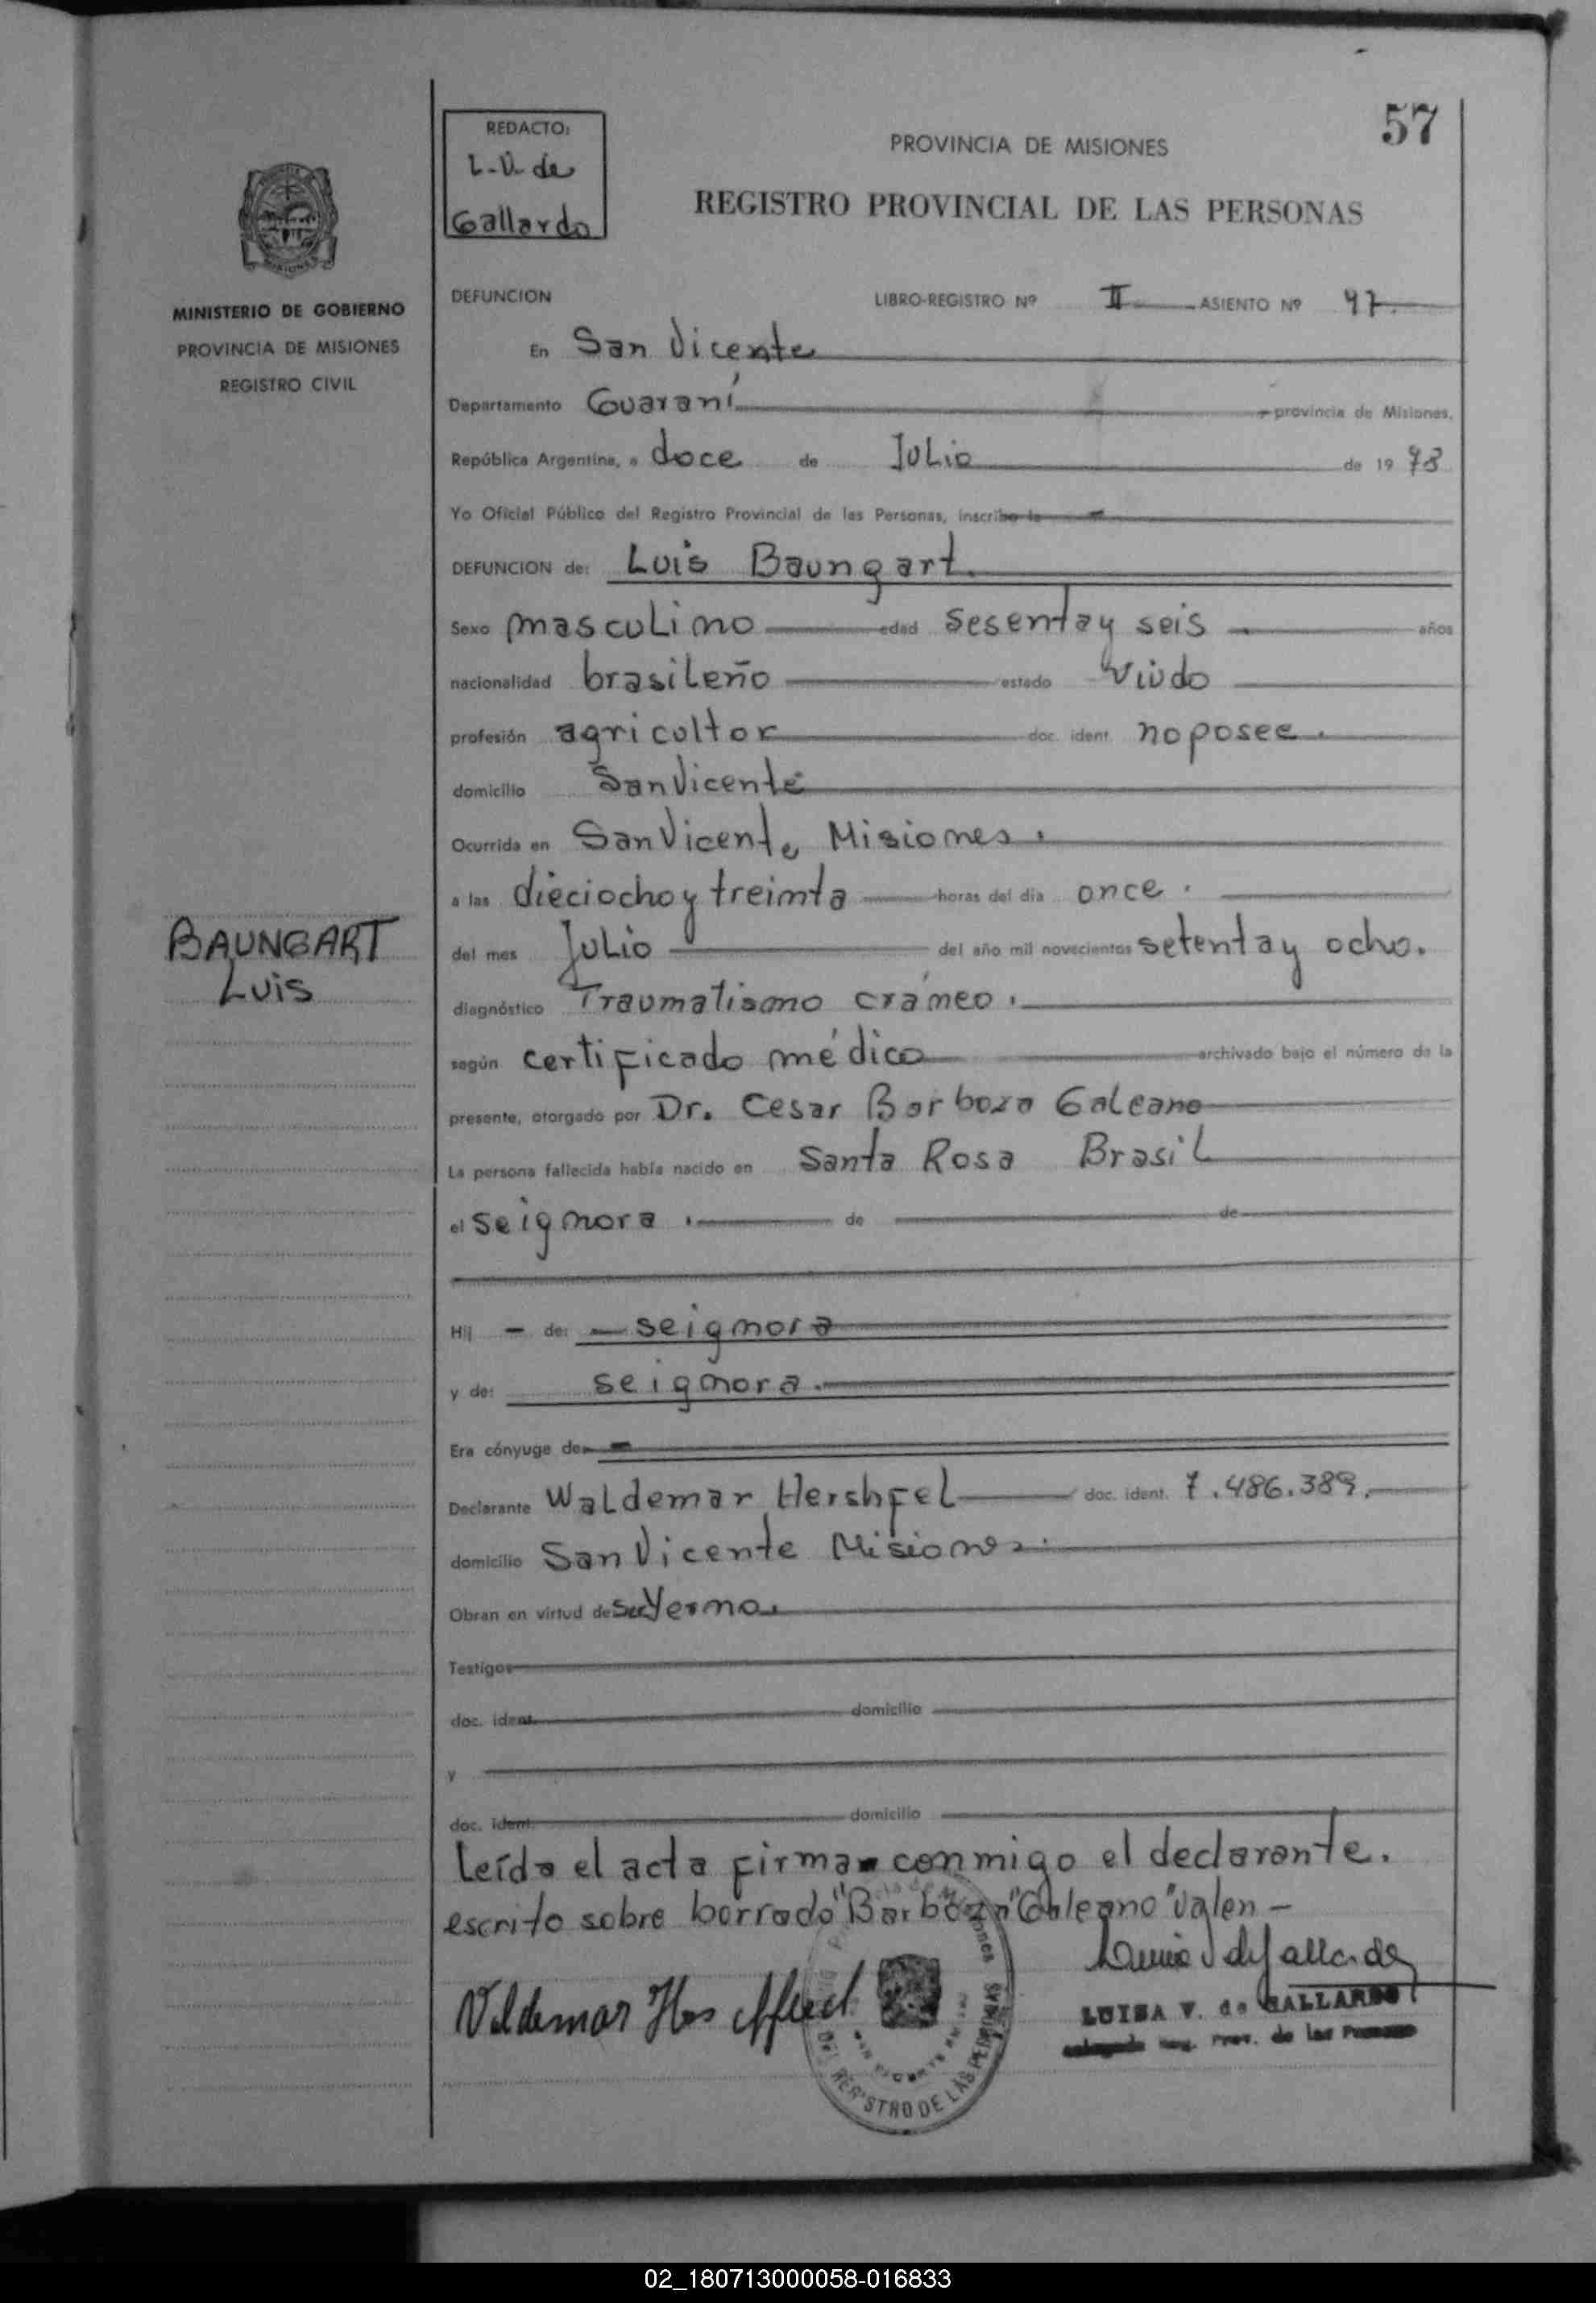 57
REDACTO:
L.V. de
Gallardo
PROVINCIA DE MISIONES
REGISTRO PROVINCIAL DE LAS PERSONAS
MISIONES
MINISTERIO DE GOBIERNO
PROVINCIA DE MISIONES
REGISTRO CIVIL
DEFUNCION LIBRO-REGISTRO Nº II ASIENTO Nº 47.
En San Vicente
Departamento Guaraní provincia de Misiones,
República Argentina, a doce de Julio de 1978
Yo Oficial Público del Registro Provincial de las Personas, inscribo la
DEFUNCION de: Luis Baungart.
Sexo masculino edad sesentay seis años
nacionalidad brasileño estado Viudo
profesión agricultor doc. ident. no posee.
domicilio San Vicente
Ocurrida en San Vicente Misiones.
a las dieciocho y treinta horas del dia once.
BAUNGART
Luis
del mes Julio del año mil novecientos setentay ocho.
diagnóstico Traumatismo cráneo.
según certificado médico archivado bajo el número de la
presente, otorgado por Dr. Cesar Barboza Galeano
La persona fallecida había nacido en Santa Rosa Brasil
el seignora. de de
Hij - de: seignora
y de: seignora.
Era cónyuge de
Declarante Waldemar Hershfel doc. ident. 7.486.389.
domicilio San Vicente Misiones.
Obran en virtud de Ser Yerno.
Testigos
doc. ident. domicilio
y
doc. ident. domicilio
Leída el acta firma conmigo el declarante.
escrito sobre borrado "Barboza" "Galeano" valen -
LUISA V. de GALLARDO
Reg. Prov. de las Personas
DEL REGISTRO DE LAS PERSONAS
02_180713000058-016833